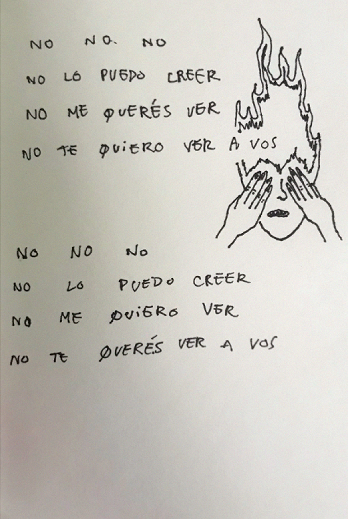 NO NO. NO
NO LO PUEDO CREER
NO ME QUERÉS VER
NO TE QUIERO VER A VOS
NO NO NO
NO LO PUEDO CREER
NO ME QUIERO VER
NO TE QUERÉS VER A VOS